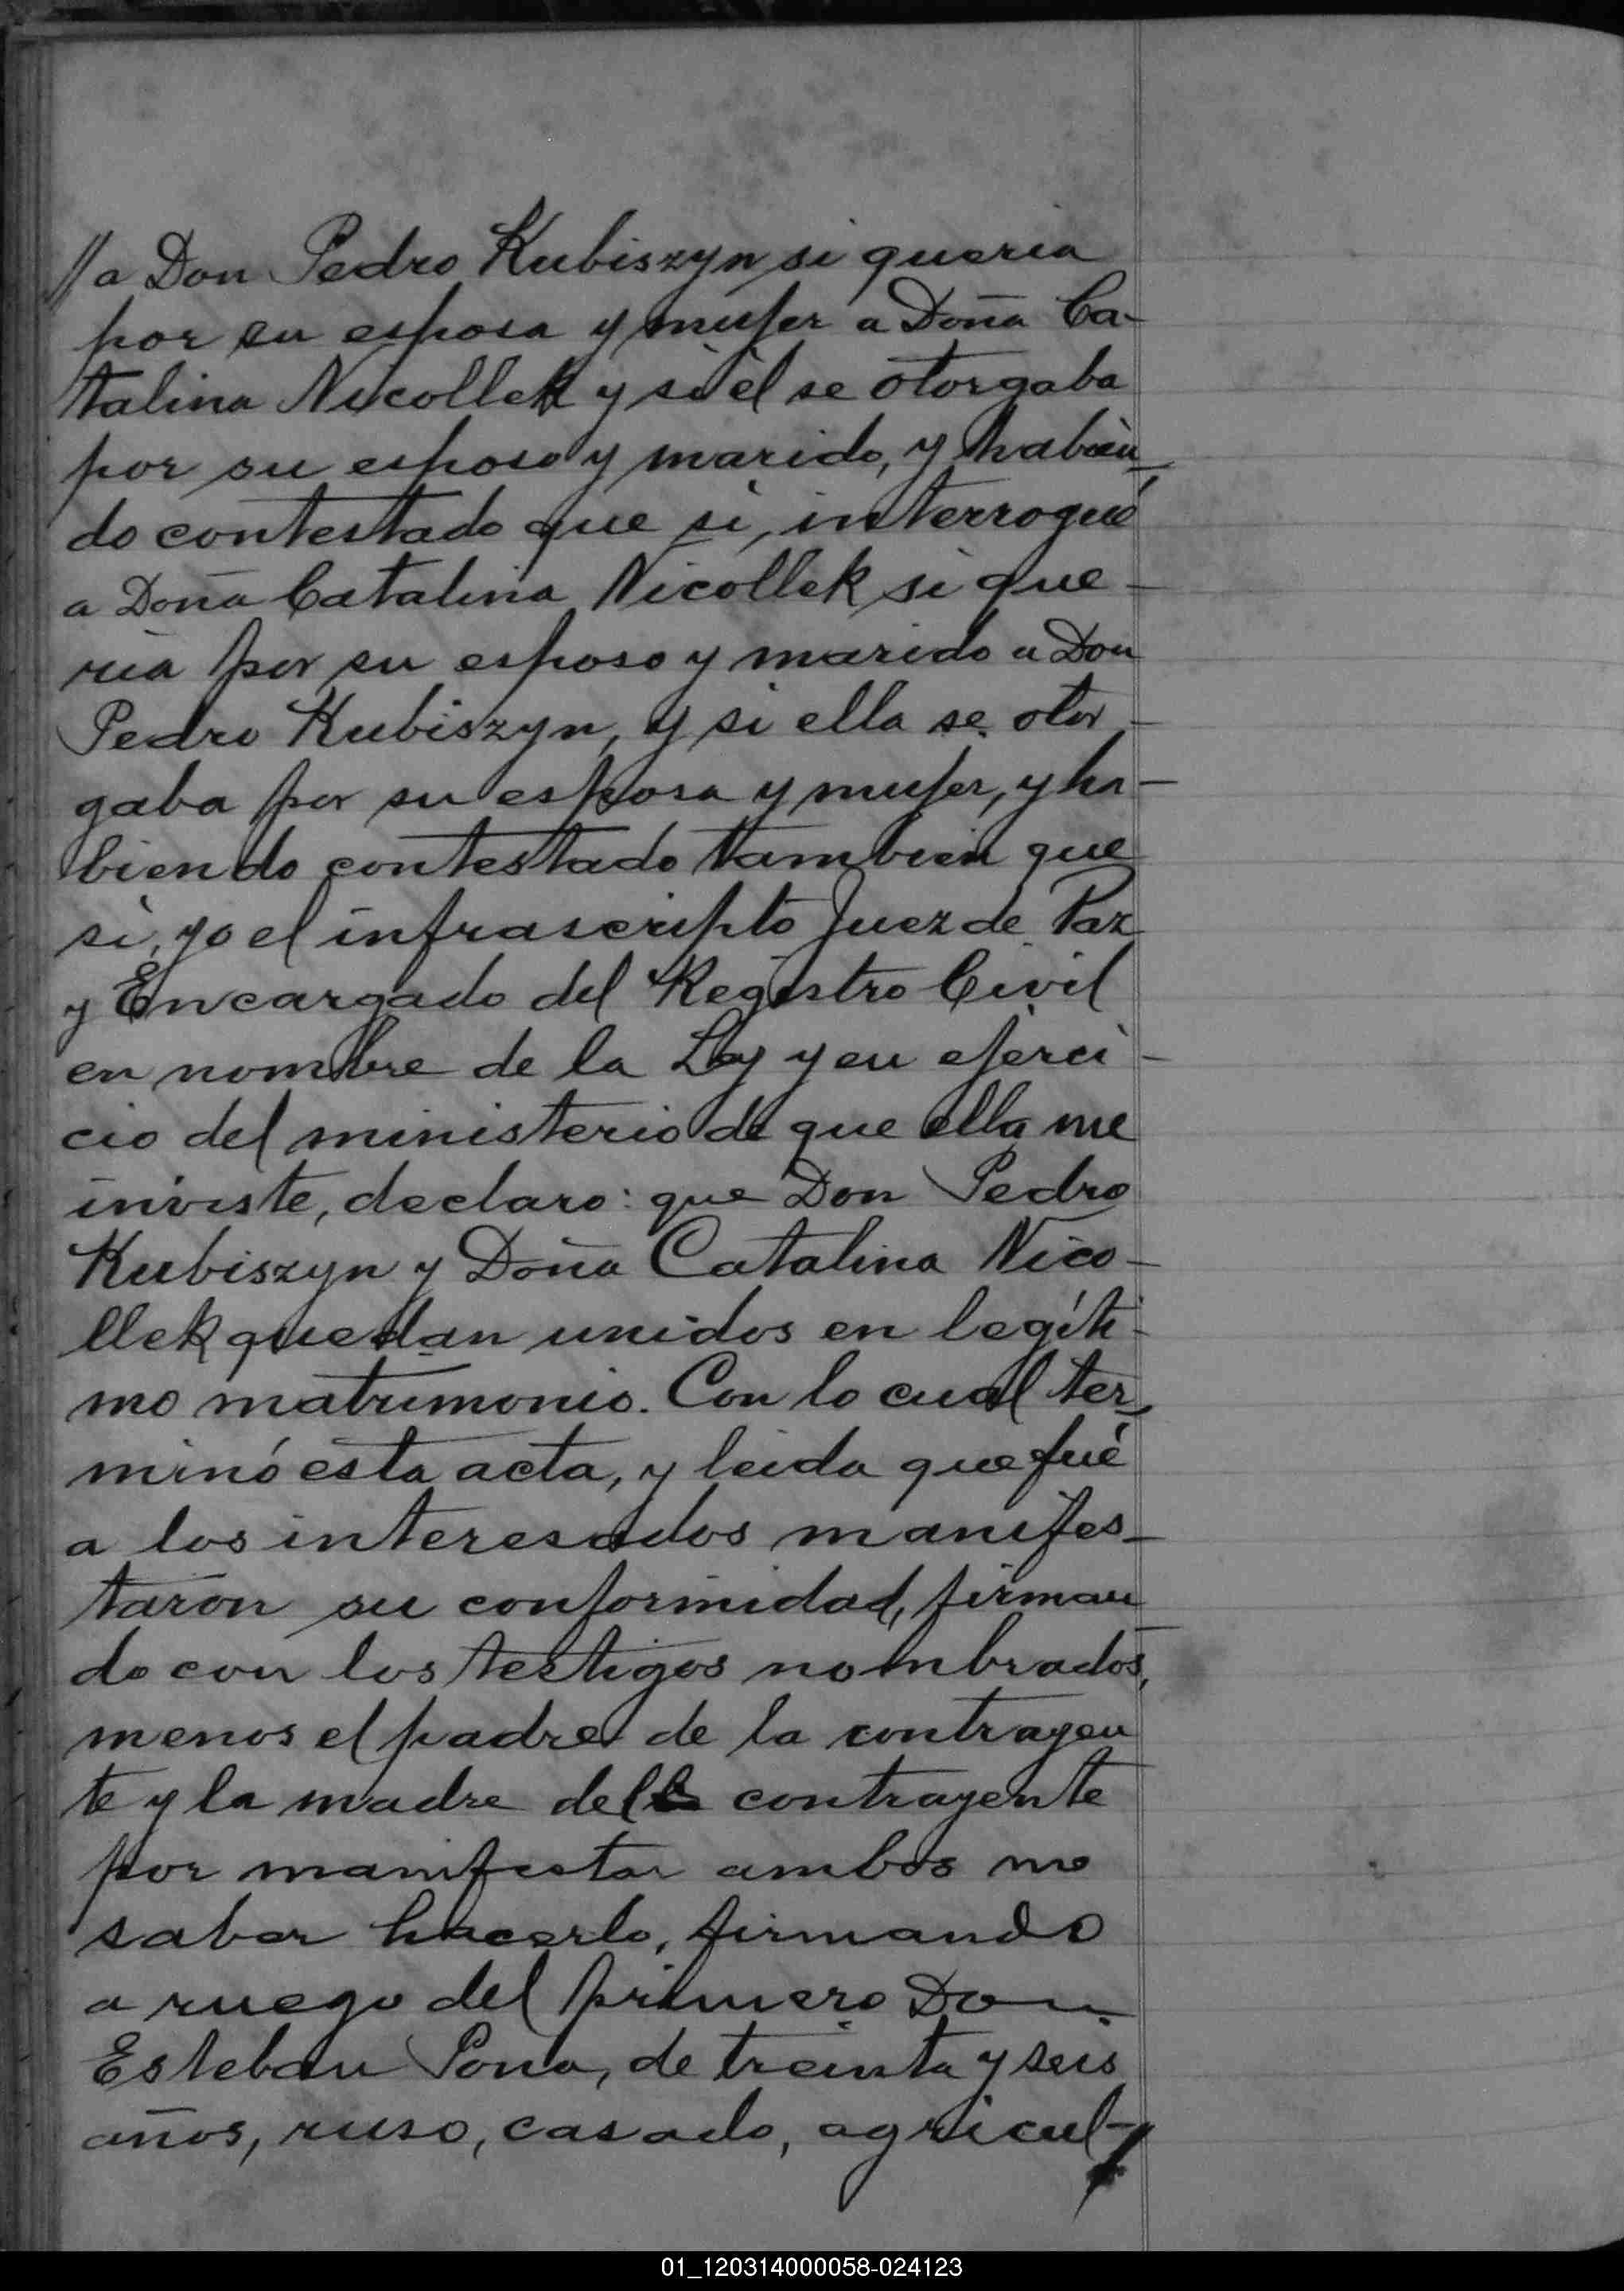 //a Don Pedro Kubiszyn si queria
por su esposa y mujer a Doña Ca-
talina Nicollek y si él se otorgaba
por su esposo y marido, y habien
do contestado que si, interrogué
a Doña Catalina Nicollek si que-
ria por su esposo y marido a Don
Pedro Kubiszyn, y si ella se otor-
gaba por su esposa y mujer, y ha-
biendo contestado tambien que
si, yo el infrascripto Juez de Paz
y Encargado del Registro Civil
en nombre de la Ley y en ejerci-
cio del ministerio de que ella me
inviste, declaro: que Don Pedro
Kubiszyn y Doña Catalina Nico-
llek quedan unidos en legíti-
mo matrimonio. Con lo cual ter
minó esta acta, y leida que fué
a los interesados manifes-
taron su conformidad, firman
do con los testigos nombrados,
menos el padre de la contrayen
te y la madre del contrayente
por manifestar ambos no
saber hacerlo, firmando
a ruego del primero Don
Esteban Pona, de treinta y seis
años, ruso, casado, agricul-
01_120314000058-024123